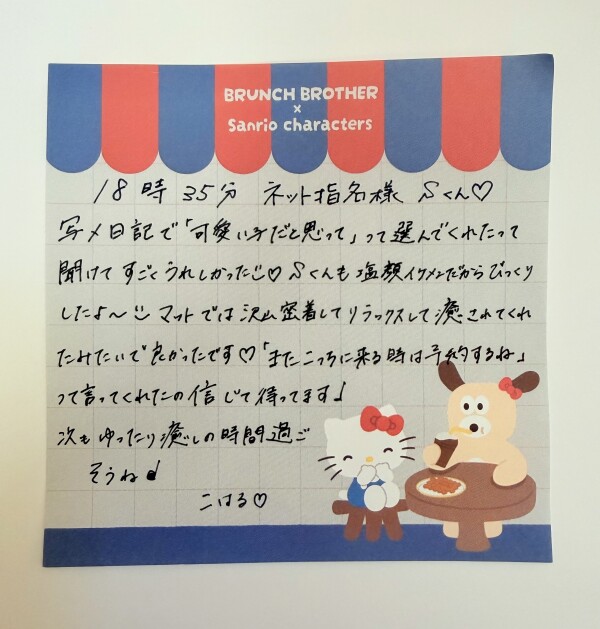 BRUNCH BROTHER
×
Sanrio characters
18時35分 ネット指名様 Sくん♡
写メ日記で「可愛い子だと思って」って選んでくれたって
聞けてすごくうれしかった♡Sくんも塩顔イケメンだからびっくり
したよ〜 マットでは沢山密着してリラックスして癒されてくれ
たみたいで良かったです♡「またこっちに来る時は予約するね」
って言ってくれたの信じて待ってます♪
次もゆったり癒しの時間過ご
そうね♪
こはる♡